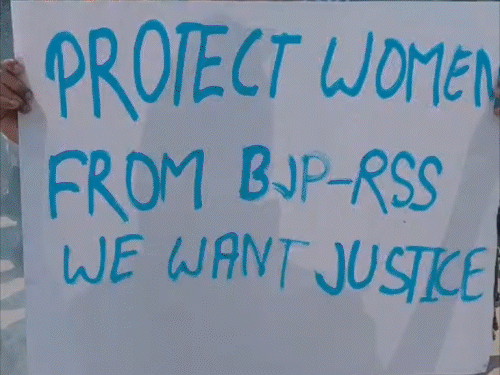 PROTECT WOMEN
FROM BJP-RSS
WE WANT JUSTICE